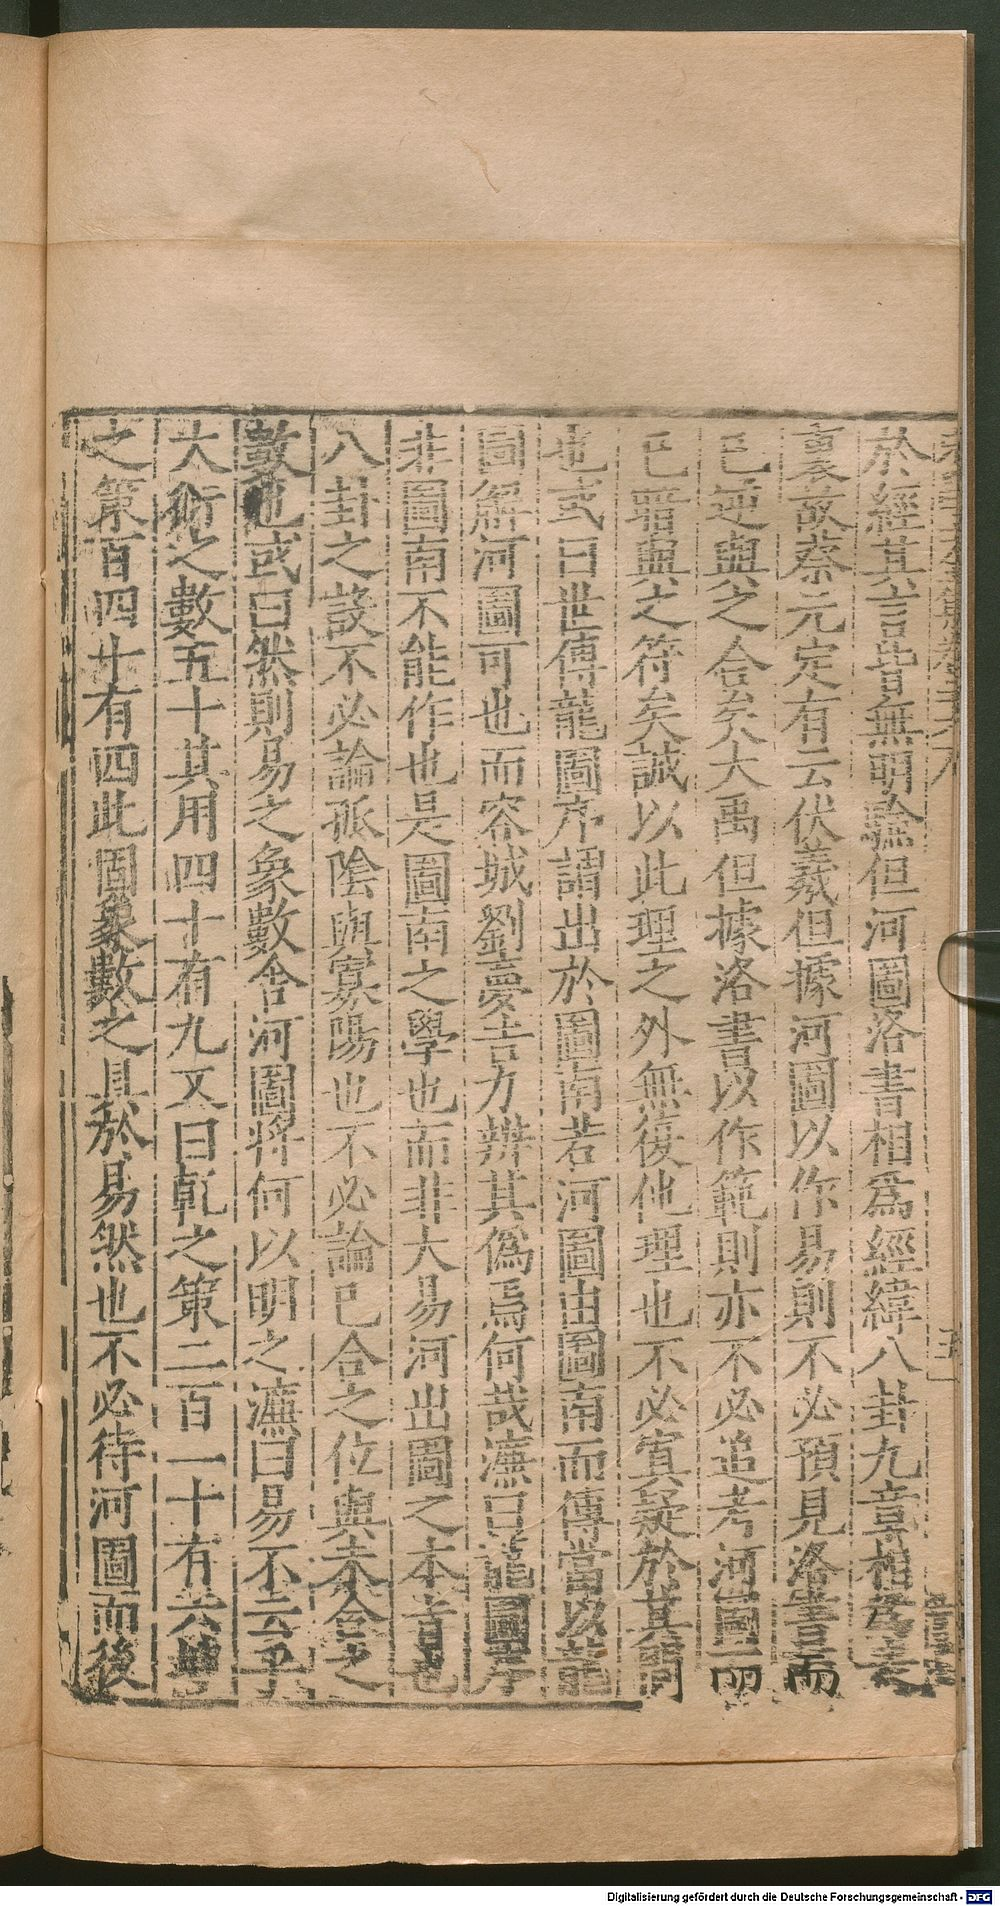 於經其言皆無明驗但河圖洛書相爲經緯八卦九章相爲表
裏故蔡元定有云伏羲但據河圖以作易則不必預見洛書而
已逆與之合矣大禹但據洛書以作範則亦不必追考河圖而
已暗與之符矣誠以此理之外無復他理也不必寘疑於其間
也或曰世傳龍圖序謂出於圖南若河圖由圖南而傳當以龍
圖解河圖可也而容城劉夢吉力辨其僞焉何哉濂曰龍圖序
非圖南不能作也是圖南之學也而非大易河出圖之本旨也
八卦之設不必論孤陰與寡陽也不必論已合之位與未合之
數也或曰然則易之象數舍河圖將何以明之濂曰易不云乎
大衍之數五十其用四十有九又曰乾之策二百一十有六坤
之策百四十有四此固象數之具於易然也不必待河圖而後
Digitalisierung gefördert durch die Deutsche Forschungsgemeinschaft - DFG